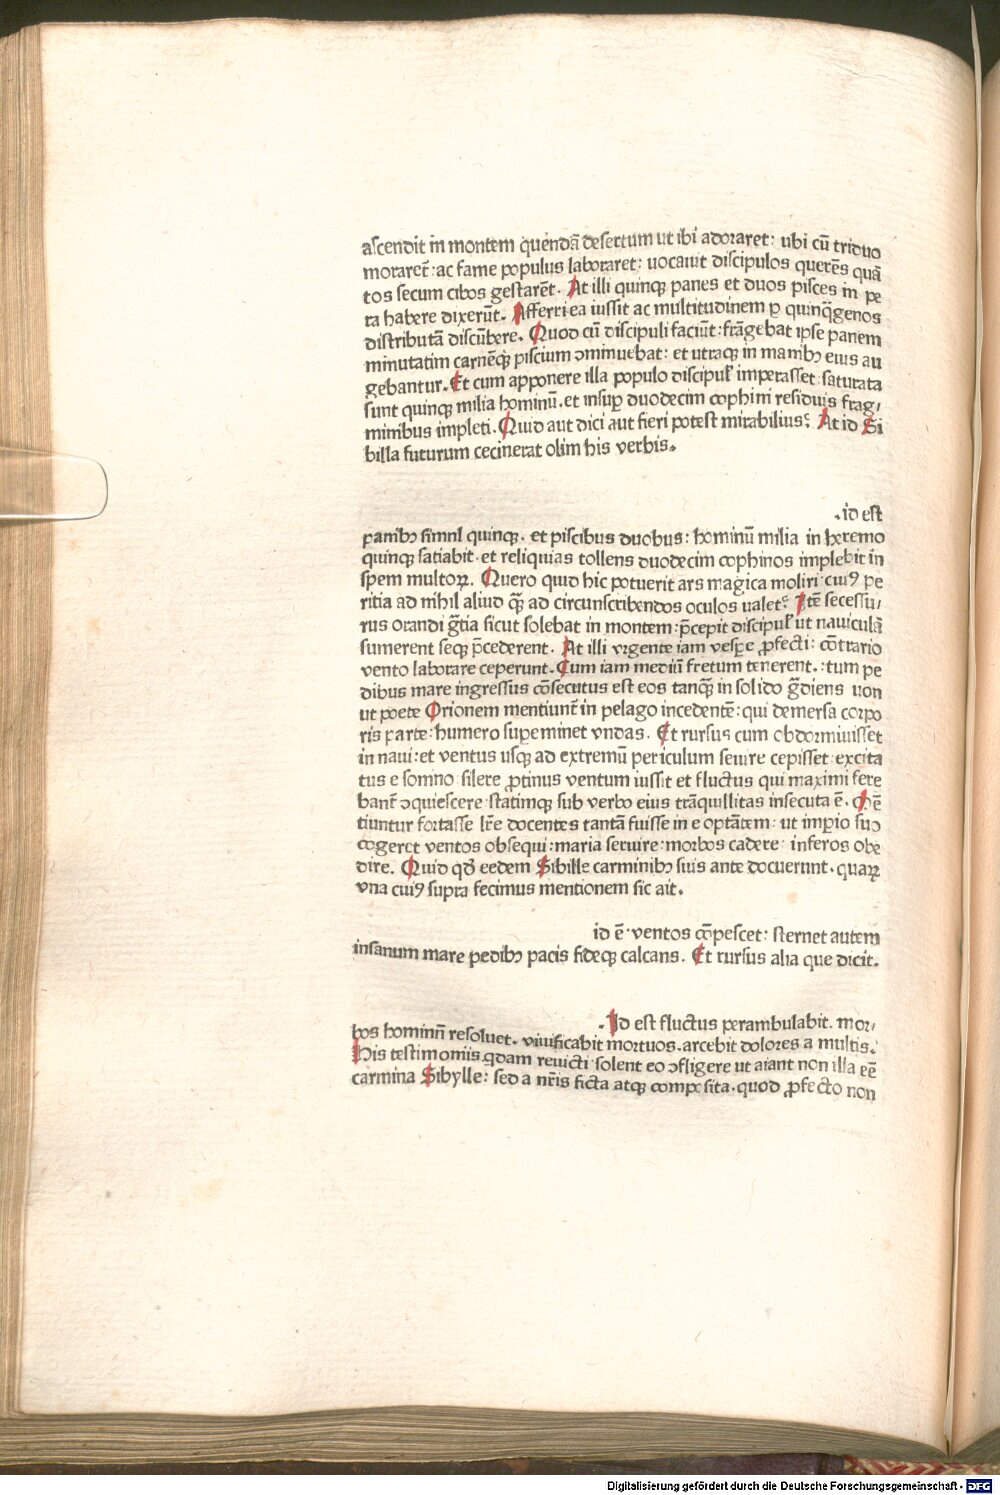 ascendit in montem quendã desertum ut ibi adoraret: ubi cũ triduo
moraret᷑: ac fame populus laboraret: uocauit discipulos querẽs quã
tos secum cibos gestarẽt. At illi quinqꝫ panes et duos pisces in pe
ra habere dixerũt. Afferri ea iussit ac multitudinem p̲ quinq̃genos
distributã discũbere. Quod cũ discipuli faciũt: frãgebat ipse panem
minutatim carnẽqꝫ piscium ↄminuebat: et utraqꝫ in manibꝫ eius au
gebantur. Et cum apponere illa populo discipul᷑ imperasset: saturata
sunt quinqꝫ milia hominũ. et insup̲ duodecim cophini residuis frag,
minibus impleti. Quid aut dici aut fieri potest mirabilius? At id Si
billa futurum cecinerat olim his verbis.
.id est
panibꝫ simnl quinqꝫ. et piscibus duobus: hominũ milia in heremo
quinqꝫ satiabit. et reliquias tollens duodecim cophinos implebit in
spem multoꝝ. Quero quid hic potuerit ars magica moliri cuiꝰ pe
ritia ad nihil aliud q̃ꝫ ad circunscribendos oculos ualet? Itẽ secessu,
rus orandi gr̃tia sicut solebat in montem: p̃cepit discipul᷑ ut nauiculã
sumerent seqꝫ p̃cederent. At illi vrgente iam vesp̲e ꝓfecti: cõtrario
vento laborare ceperunt. Cum iam mediũ fretum tenerent.: tum pe
dibus mare ingressus cõsecutus est eos tanq̃ꝫ in solido gr̃diens uon
ut poete Orionem mentiunt᷑ in pelago incedentẽ: qui demersa corpo
ris parte: humero sup̲eminet vndas. Et rursus cum obdormiuisset
in naui: et ventus usqꝫ ad extremũ periculum seuire cepisset: excita
tus e somno: silere ꝓtinus ventum iussit et fluctus qui maximi fere
bant᷑ ↄquiescere: statimqꝫ sub verbo eius trãquillitas insecuta ẽ. Mẽ
tiuntur fortasse lr̃e docentes tantã fuisse in e optãtem: ut imp̲io suo
cogeret ventos obsequi: maria seruire: morbos cadere: inferos obe
dire. Quid qđ eedem Sibille carminibꝫ suis ante docuerunt. quaꝝ
vna cuiꝰ supra fecimus mentionem sic ait.
id ẽ. ventos cõpescet: sternet autem
insanum mare pedibꝫ pacis fideqꝫ calcans. Et rursus alia que dicit.
. Id est fluctus perambulabit. mor,
bos hominñ resoluet. viuificabit mortuos. arcebit dolores a multis.
His testimoniis q̃dam reuicti solent eo ↄfligere ut aiant non illa eẽ
carmina Sibylle: sed a nr̃is ficta atqꝫ composita. quod ꝓfecto non
Digitalisierung gefördert durch die Deutsche Forschungsgemeinschaft - DFG